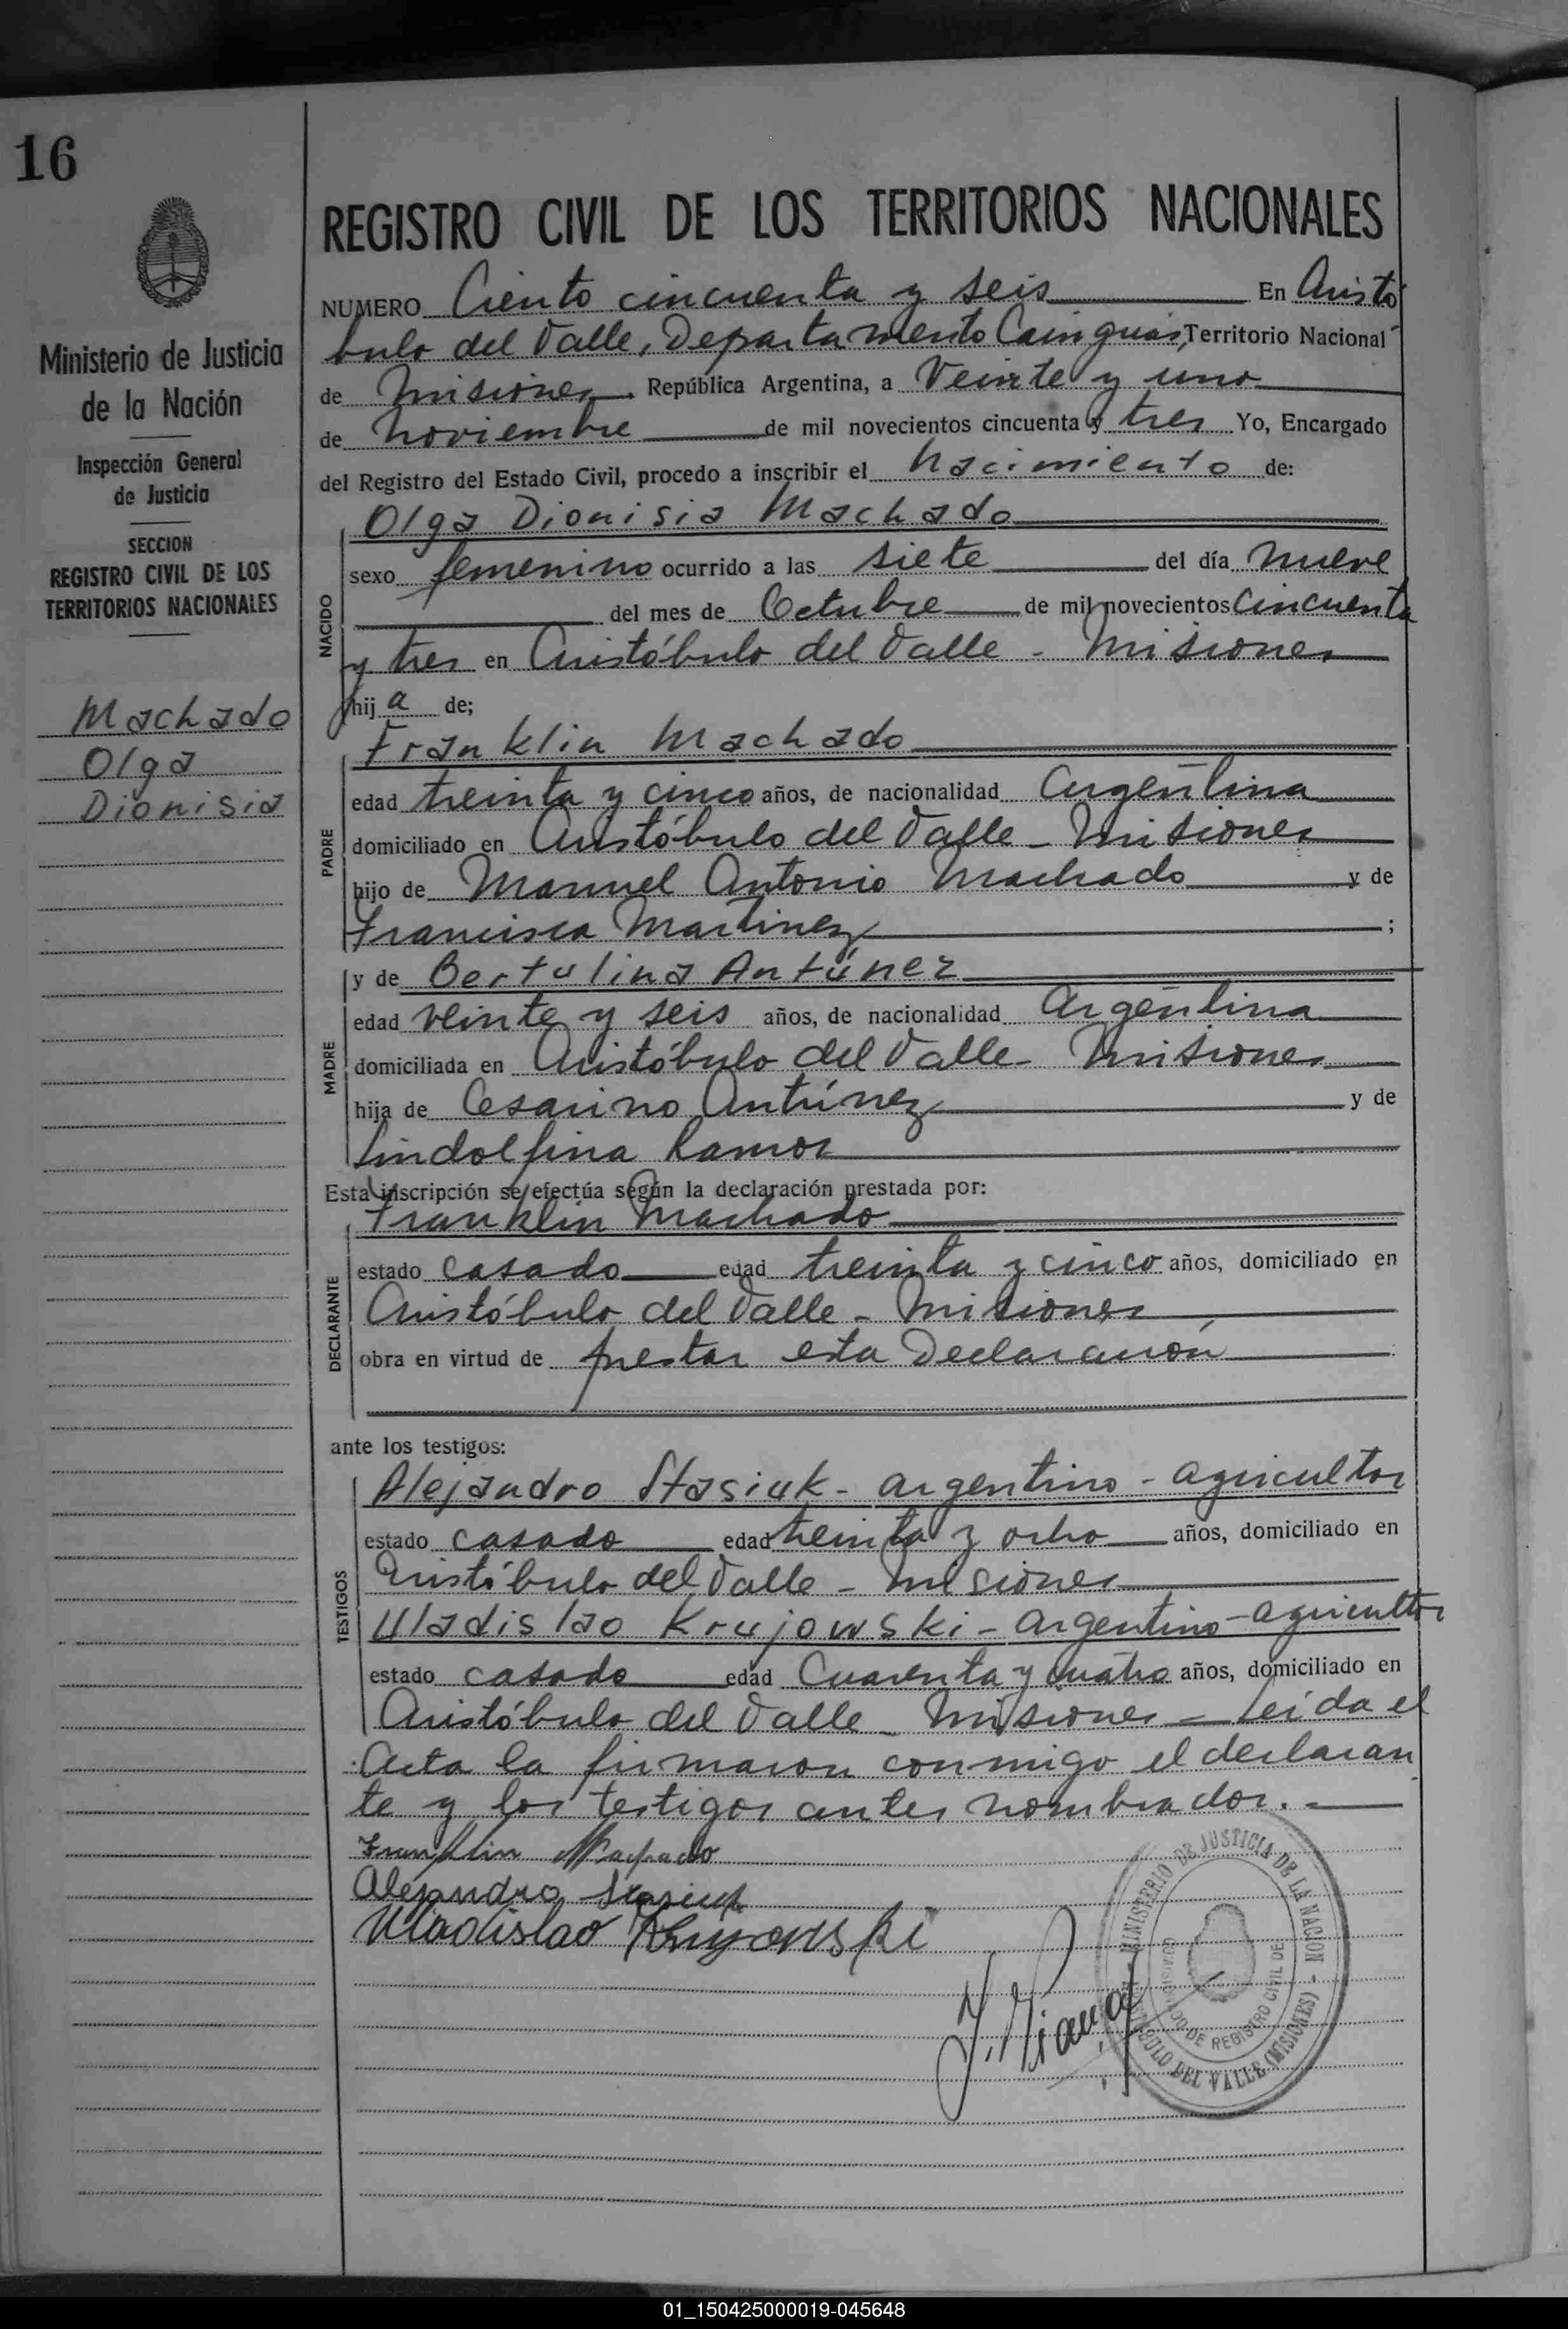 16
Ministerio de Justicia
de la Nación
Inspección General
de Justicia
SECCION
REGISTRO CIVIL DE LOS
TERRITORIOS NACIONALES
Machado
Olga
Dionisia
REGISTRO CIVIL DE LOS TERRITORIOS NACIONALES
NUMERO Ciento cincuenta y seis En Aristó
bulo del Valle, Departamento Cainguás, Territorio Nacional
de Misiones. República Argentina, a Veinte y uno
de Noviembre de mil novecientos cincuenta y tres Yo, Encargado
del Registro del Estado Civil, procedo a inscribir el Nacimiento de:
Olga Dionisia Machado
NACIDO
sexo femenino ocurrido a las siete del día nueve
del mes de Octubre de mil novecientos cincuenta
y tres en Aristóbulo del Valle - Misiones
hija de;
Franklin Machado
PADRE
edad treinta y cinco años, de nacionalidad Argentina
domiciliado en Aristóbulo del Valle - Misiones
hijo de Manuel Antonio Machado y de
Francisca Martinez ;
y de Bertulina Antúnez
MADRE
edad veinte y seis años, de nacionalidad Argentina
domiciliada en Aristóbulo del Valle - Misiones
hija de Cesarino Antúnez y de
Lindolfina Ramos
Esta inscripción se efectúa según la declaración prestada por:
Franklin Machado
DECLARANTE
estado casado edad treinta y cinco años, domiciliado en
Aristóbulo del Valle - Misiones
obra en virtud de prestar esta Declaración
ante los testigos:
Alejandro Stasiuk - argentino - agricultor
TESTIGOS
estado casado edad treinta y ocho años, domiciliado en
Aristóbulo del Valle - Misiones
Uladislao Krujowski - argentino - agricultor
estado casado edad Cuarenta y cuatro años, domiciliado en
Aristóbulo del Valle - Misiones - Leida el
Acta la firmaron conmigo el declaran
te y los testigos antes nombrados. -
Franklin Machado
Alejandro Stasiuk
Uladislao Krujowski
MINISTERIO DE JUSTICIA DE LA NACION
DE REGISTRO CIVIL DE
DEL VALLE (MISIONES)
01_150425000019-045648